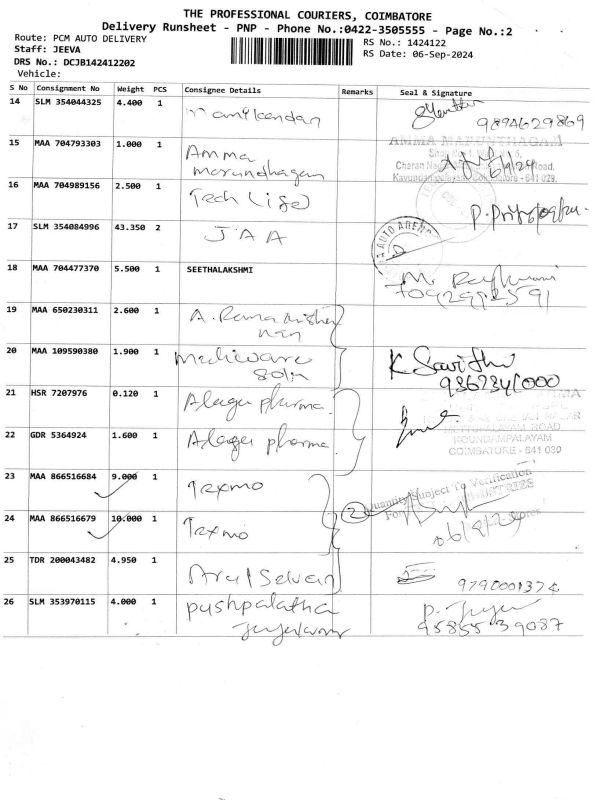 THE PROFESSIONAL COURIERS, COIMBATORE
Delivery Runsheet - PNP - Phone No.:0422-3505555 - Page No.:2
Route: PCM AUTO DELIVERY
RS No.: 1424122
Staff: JEEVA
RS Date: 06-Sep-2024
DRS No.: DCJB142412202
Vehicle:
S No Consignment No Weight PCS Consignee Details Remarks Seal & Signature
14 SLM 354044325 4.400 1 manikandan
9894629869
15 MAA 704793303 1.000 1 Amma
marundhagam
AMMA MARUNDHAGAM
Cheran Nagar Road,
Kavundampalayam, Coimbatore - 641 029.
16 MAA 704989156 2.500 1 Tech Life
17 SLM 354084996 43.350 2 JAA
AUTO
18 MAA 704477370 5.500 1 SEETHALAKSHMI
M.
19 MAA 650230311 2.600 1 A.
20 MAA 109590380 1.900 1 Mediware
Soln
K Savithri
21 HSR 7207976 0.120 1 Alagu pharma.
ROAD
KOUNDAMPALAYAM
COIMBATORE - 641 030
22 GDR 5364924 1.600 1 Alagu pharma.
23 MAA 866516684 9.000 1 Texmo
2
Quantity Subject To Verification
For
24 MAA 866516679 10.000 1 Texmo
Stores
06/9/24
25 TDR 200043482 4.950 1 Arul Selvan
9790001374
26 SLM 353970115 4.000 1 pushpalatha
9585539087